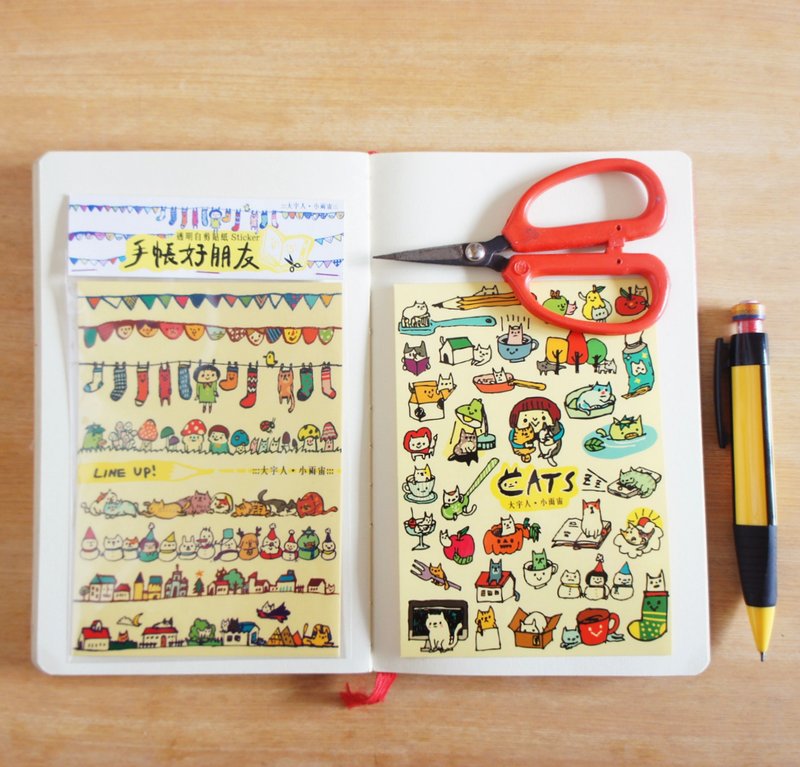 :::大字人•小雨宙:::
透明自剪貼紙 Sticker
手帳好朋友
LINE UP!
:::大字人•小雨宙:::
CATS
大字人•小雨宙